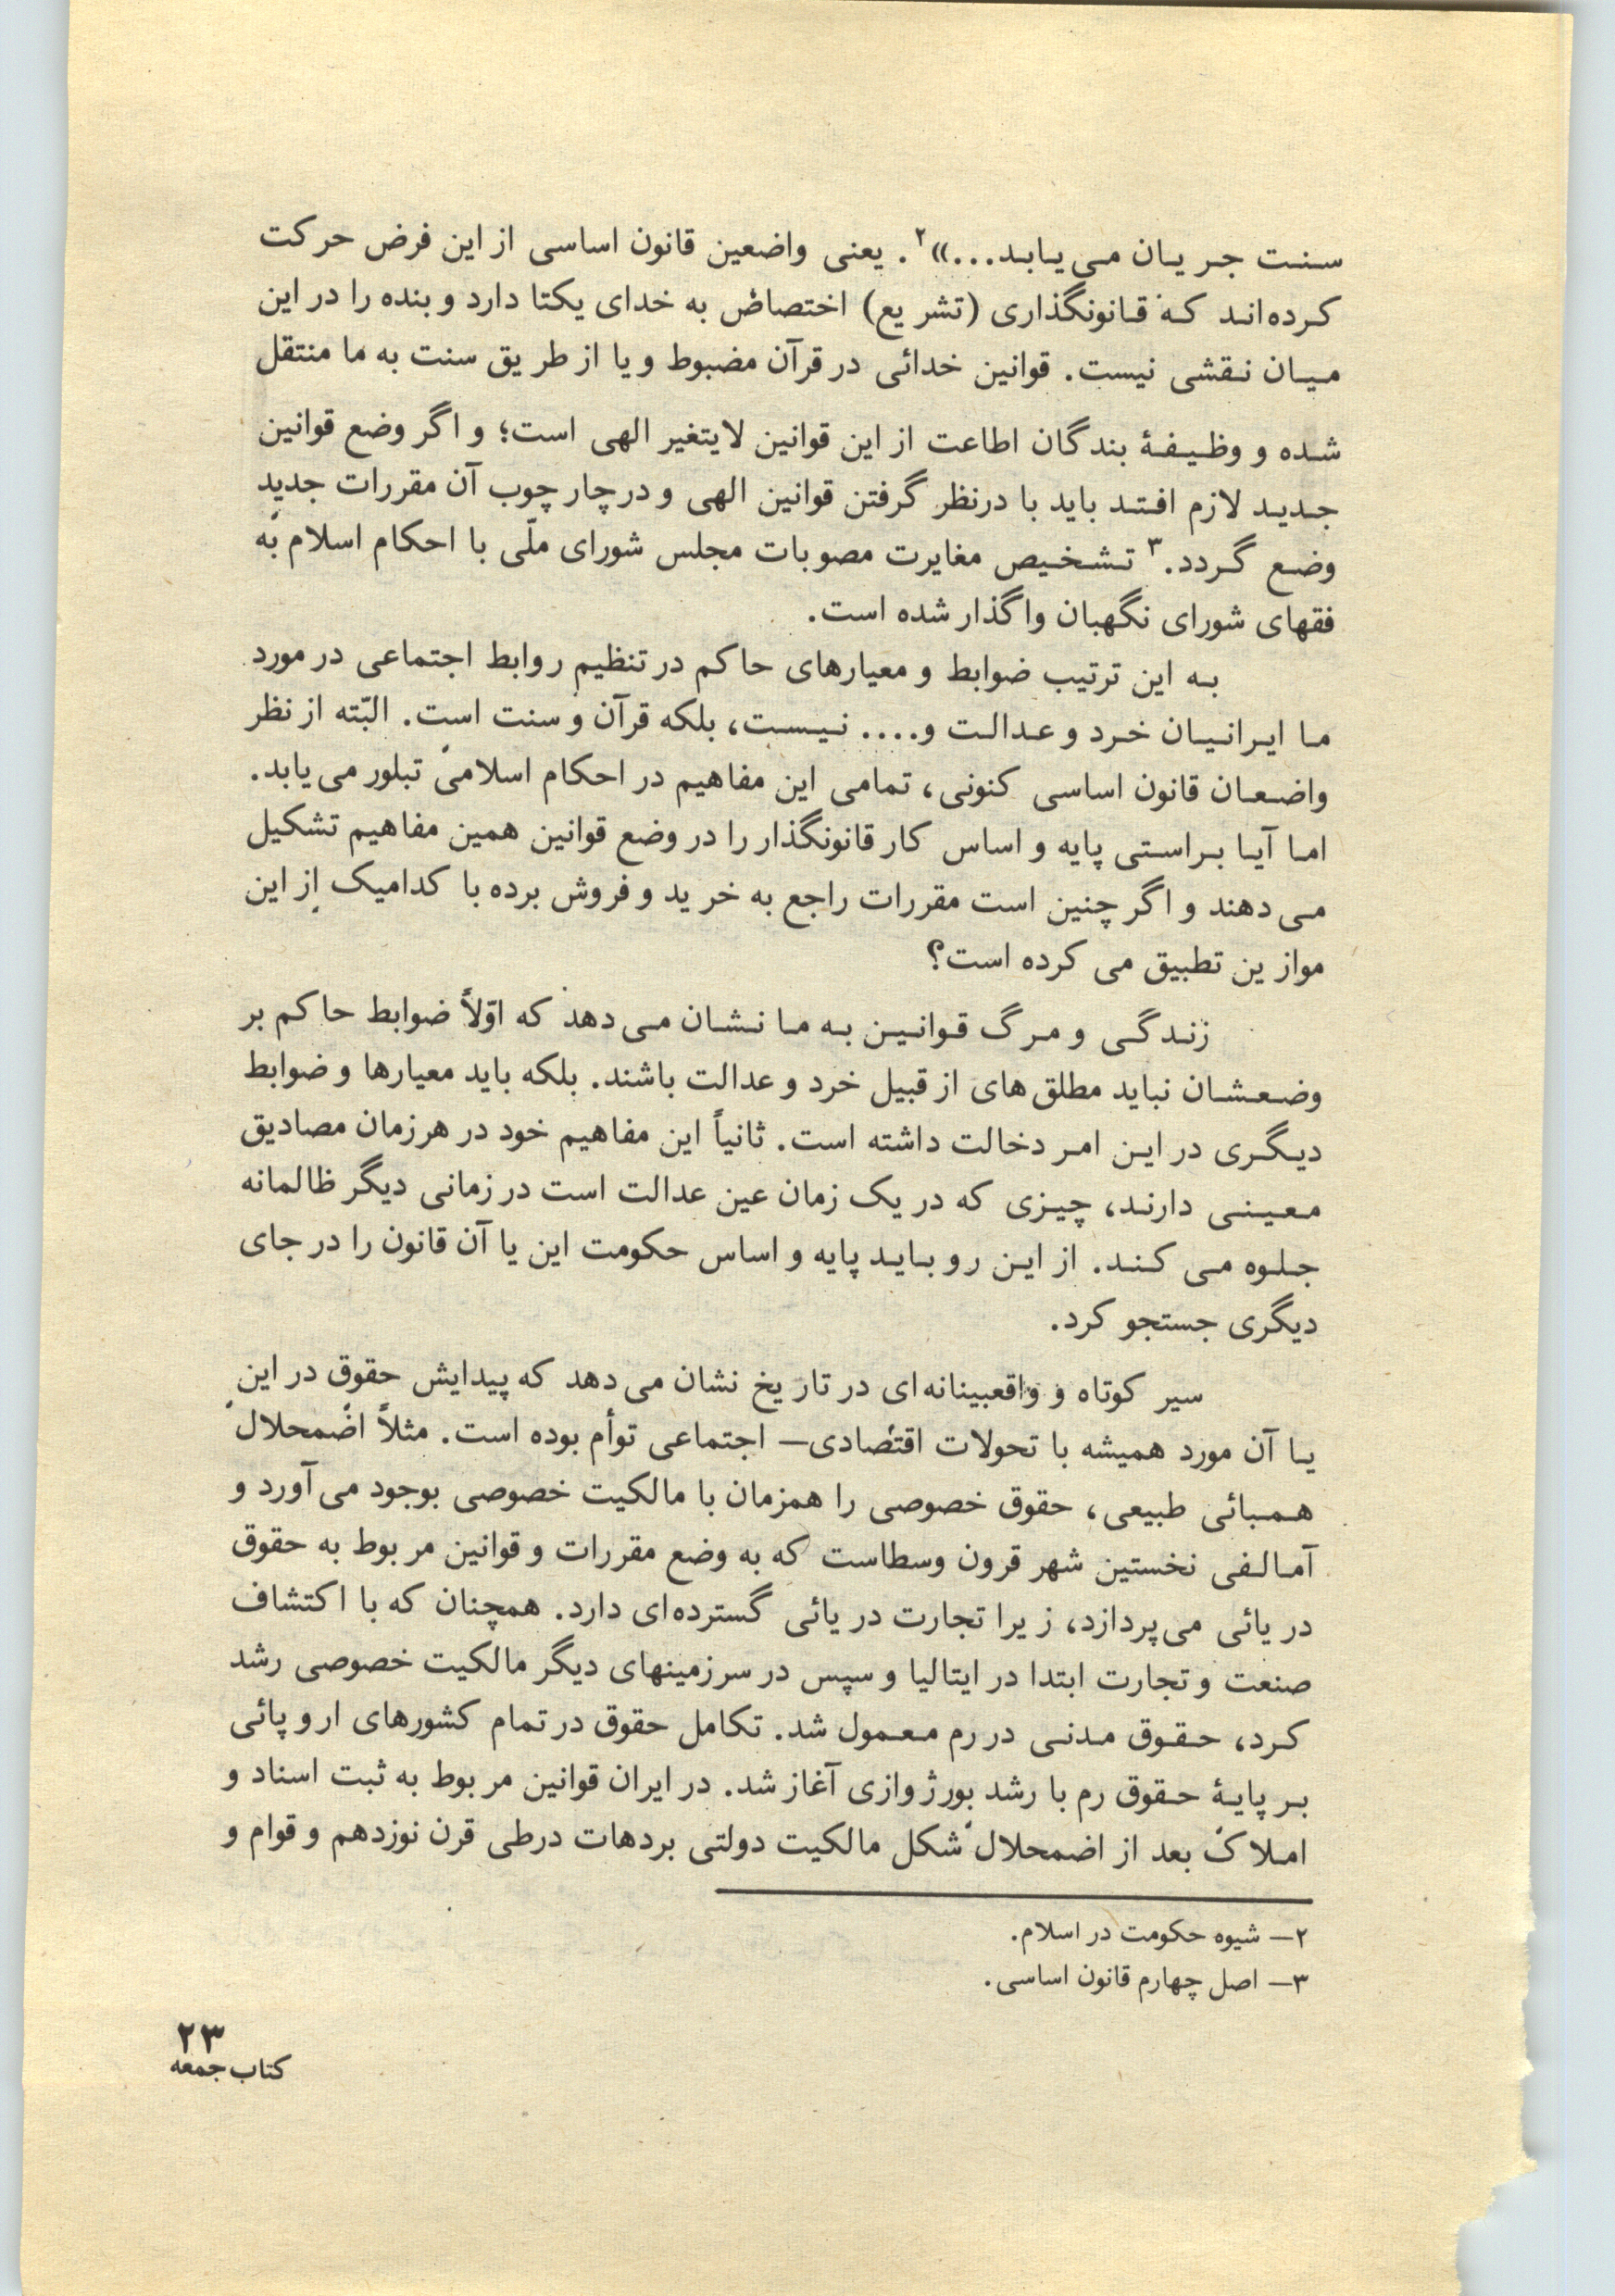 سنت جریان می‌یابد...»۲. یعنی واضعین قانون اساسی از این فرض حرکت
کرده‌اند که قانونگذاری (تشریع) اختصاص به خدای یکتا دارد و بنده را در این
میان نقشی نیست. قوانین خدائی در قرآن مضبوط و یا از طریق سنت به ما منتقل
شده و وظیفهٔ بندگان اطاعت از این قوانین لایتغیر الهی است؛ و اگر وضع قوانین
جدید لازم افتد باید با درنظر گرفتن قوانین الهی و در چارچوب آن مقررات جدید
وضع گردد.۳ تشخیص مغایرت مصوبات مجلس شورای ملّی با احکام اسلام به
فقهای شورای نگهبان واگذار شده است.
به این ترتیب ضوابط و معیارهای حاکم در تنظیم روابط اجتماعی در مورد
ما ایرانیان خرد و عدالت و.... نیست، بلکه قرآن و سنت است. البّته از نظر
واضعان قانون اساسی کنونی، تمامی این مفاهیم در احکام اسلامی تبلور می‌یابد.
اما آیا براستی پایه و اساس کار قانونگذار را در وضع قوانین همین مفاهیم تشکیل
می‌دهند و اگر چنین است مقررات راجع به خرید و فروش برده با کدامیک از این
موازین تطبیق می کرده است؟
زندگی و مرگ قوانین به ما نشان می‌دهد که اوّلاً ضوابط حاکم بر
وضعشان نباید مطلق‌های از قبیل خرد و عدالت باشند. بلکه باید معیارها و ضوابط
دیگری در این امر دخالت داشته است. ثانیاً این مفاهیم خود در هر زمان مصادیق
معینی دارند، چیزی که در یک زمان عین عدالت است در زمانی دیگر ظالمانه
جلوه می کند. از این رو باید پایه و اساس حکومت این یا آن قانون را در جای
دیگری جستجو کرد.
سیر کوتاه و واقعبینانه‌ای در تاریخ نشان می‌دهد که پیدایش حقوق در این
یا آن مورد همیشه با تحولات اقتصادی— اجتماعی توأم بوده است. مثلاً اضمحلال
همبائی طبیعی، حقوق خصوصی را همزمان با مالکیت خصوصی بوجود می‌آورد و
آمالفی نخستین شهر قرون وسطاست که به وضع مقررات و قوانین مربوط به حقوق
دریائی می‌پردازد، زیرا تجارت دریائی گسترده‌ای دارد. همچنان که با اکتشاف
صنعت و تجارت ابتدا در ایتالیا و سپس در سرزمینهای دیگر مالکیت خصوصی رشد
کرد، حقوق مدنی در رم معمول شد. تکامل حقوق در تمام کشورهای اروپائی
بر پایهٔ حقوق رم با رشد بورژوازی آغاز شد. در ایران قوانین مربوط به ثبت اسناد و
املاک بعد از اضمحلال شکل مالکیت دولتی بردهات درطی قرن نوزدهم و قوام و
۲— شیوه حکومت در اسلام.
۳— اصل چهارم قانون اساسی.
۲۳
کتاب جمعه